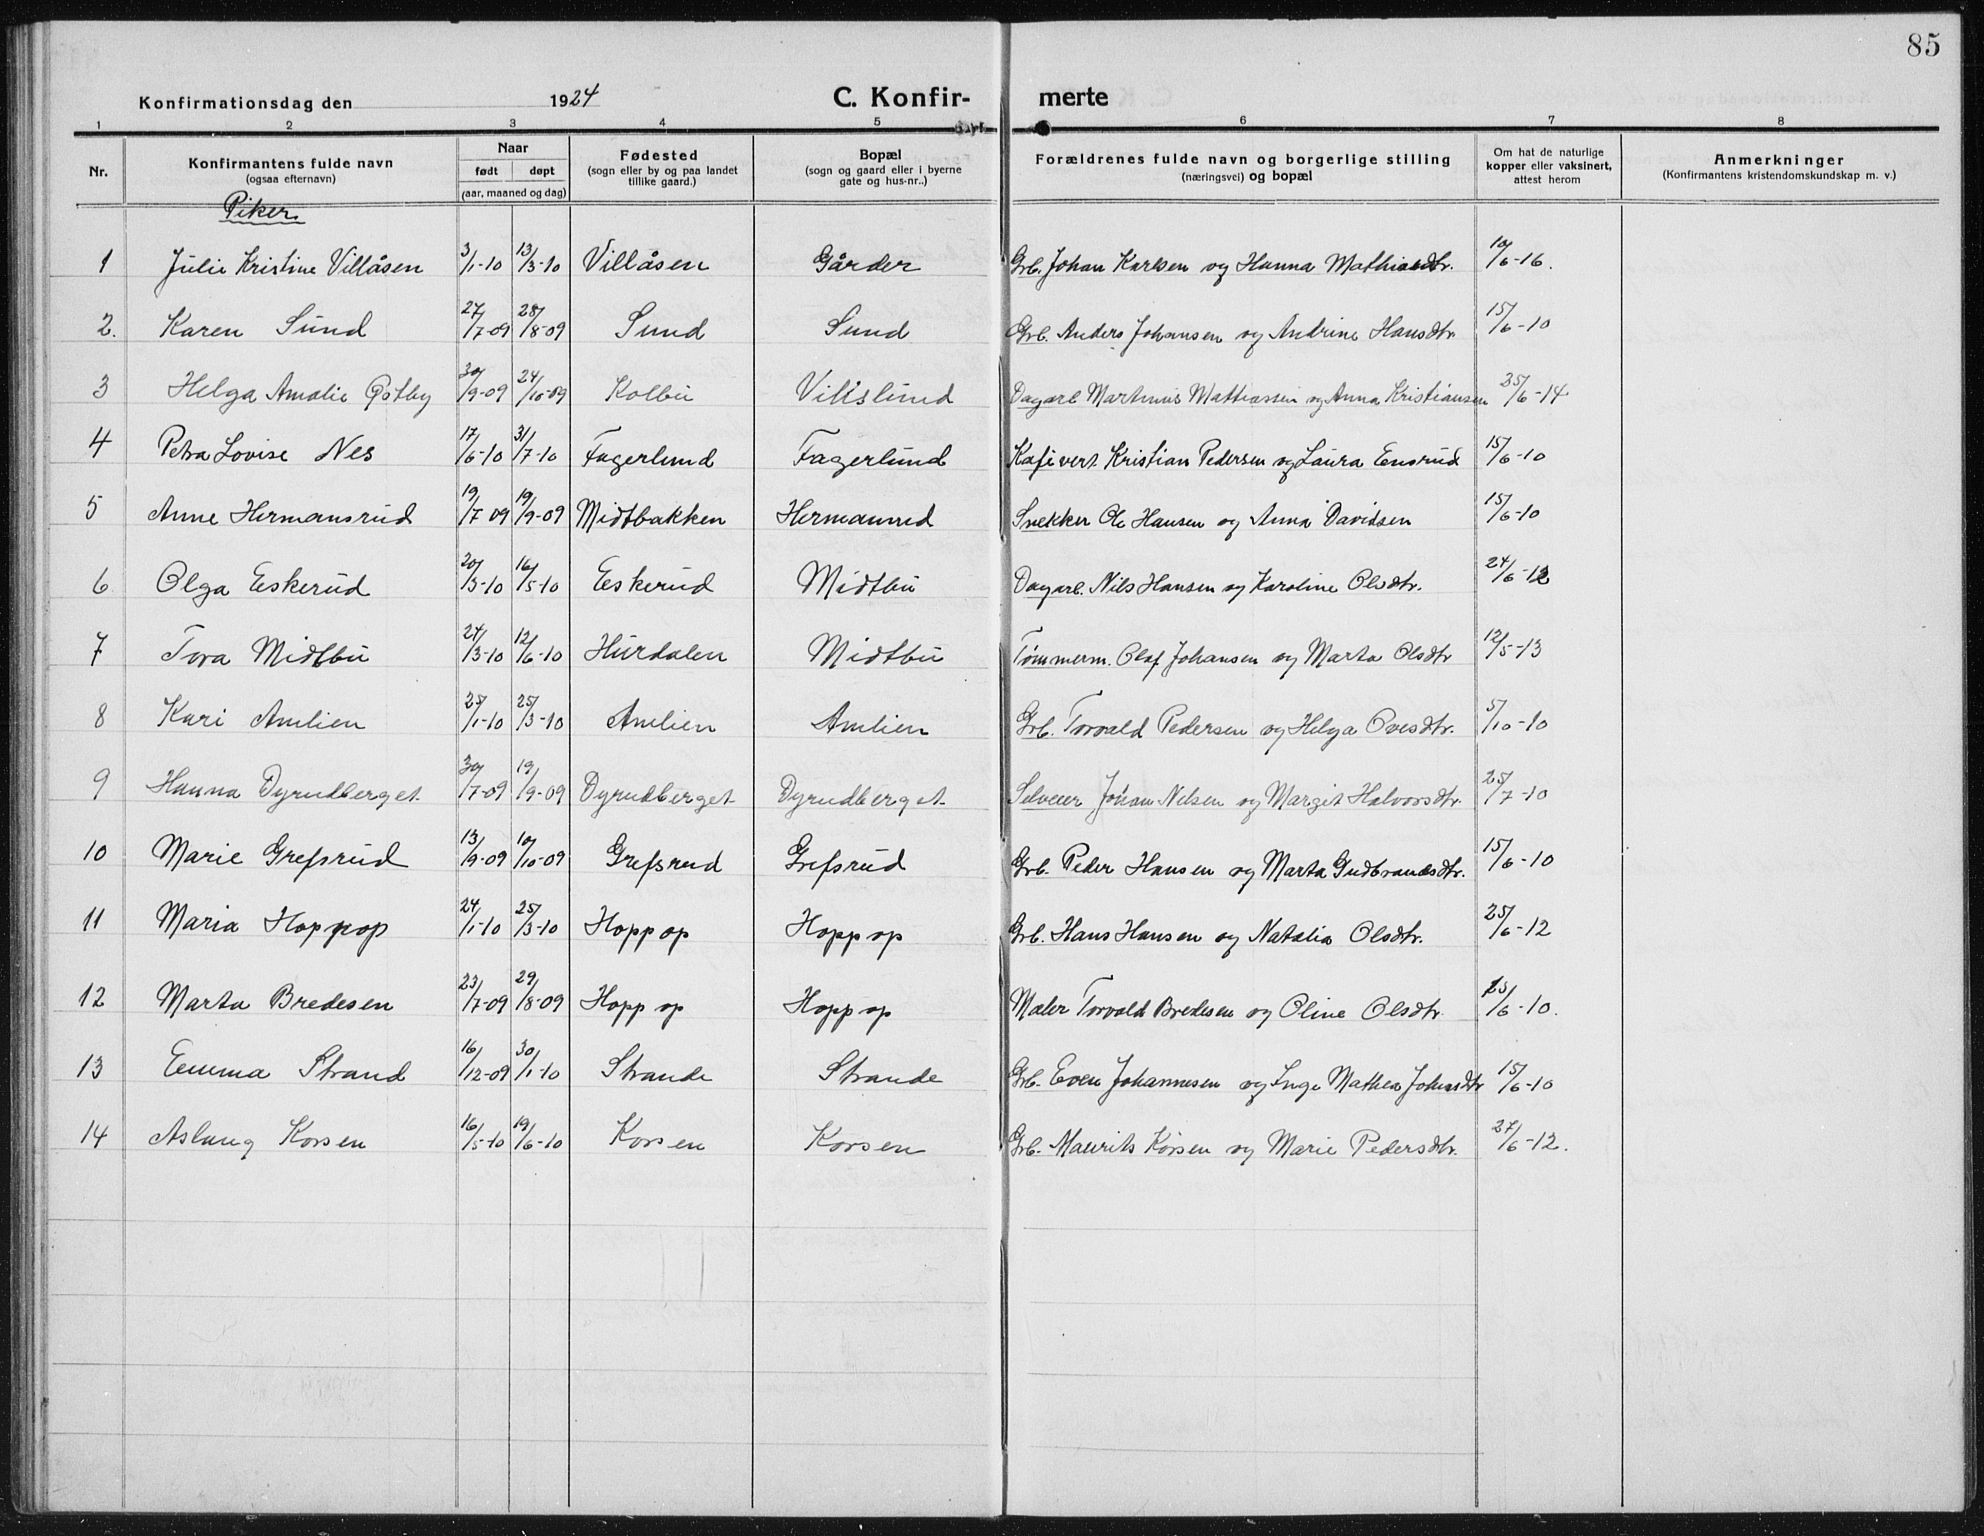 85
Konfirmationsdag den 1924 C. Konfir- merte
1 2 3 4 5 6 7 8
Nr. Konfirmantens fulde navn (ogsaa efternavn) Naar født døpt (aar, maaned og dag) Fødested (sogn eller by og paa landet tillike gaard.) Bopæl (sogn og gaard eller i byerne gate og hus-nr..) Forældrenes fulde navn og borgerlige stilling (næringsvei) og bopæl Om hat de naturlige kopper eller vaksinert, attest herom Anmerkninger (Konfirmantens kristendomskundskap m. v.)
Piker.
1 Julie Kristine Villåsen 3/1-10 13/3-10 Villåsen Gårder Grb. Johan Karlsen og Hanna Mathiasdtr. 10/6-16.
2. Karen Sund 27/7-09 28/8-09 Sund Sund Grb. Anders Johansen og Andrine Hansdtr. 15/6-10
3 Helga Amalie Østby 30/9-09 24/10-09 Kolbu Villslund Dagarb Martinus Mattiassen og Anna Kristiansen 25/6-14
4 Petra Lovise Nes 17/6-10 31/7-10 Fagerlund Fagerlund Kafévert Kristian Pedersen og Laura Ensrud 15/6-10
5 Anne Hermansrud 19/7 09 19/9-09 Midtbakken Hermansrud Snekker Ole Hansen og Anna Davidsen 15/6-10
6 Olga Eskerud 20/3-10 16/5-10 Eskerud Midtbu Dagarb. Nils Hansen og Karoline Olsdtr. 24/6-12
7 Tora Midtbu 24/3-10 12/6-10 Hurdalen Midtbu Tømmerm. Olaf Johansen og Marta Olsdtr 12/5-13
8 Kari Amlien 25/1-10 25/3-10 Amlien Amlien Grb. Torvald Pedersen og Helga Ovesdtr. 5/10-10
9 Hanna Dyrudberget 30/7-09 19/9-09 Dyrudberget Dyrudberget Selveier Johan Nilsen og Margit Halvorsdtr. 25/7-10
10 Marie Grefsrud 13/9-09 10/10-09 Grefsrud Grefsrud Grb. Peder Hansen og Marta Gudbrandsdtr. 15/6-10
11 Maria Hoppop 24/1-10 25/3-10 Hoppop Hoppop Grb. Hans Hansen og Natalia Olsdtr. 25/6-12
12 Marta Bredesen 23/7-09 29/8-09 Hoppop Hoppop Maler Torvald Bredesen og Oline Olsdtr. 15/6-10.
13 Emma Strand 16/12-09 30/1-10 Strande Strande Grb. Even Johannesen og Inge Mathea Johansdtr 15/6-10
14 Aslaug Korsen 16/5-10 19/6-10 Korsen Korsen Grb. Maurits Korsen og Marie Pedersdtr. 27/6-12.